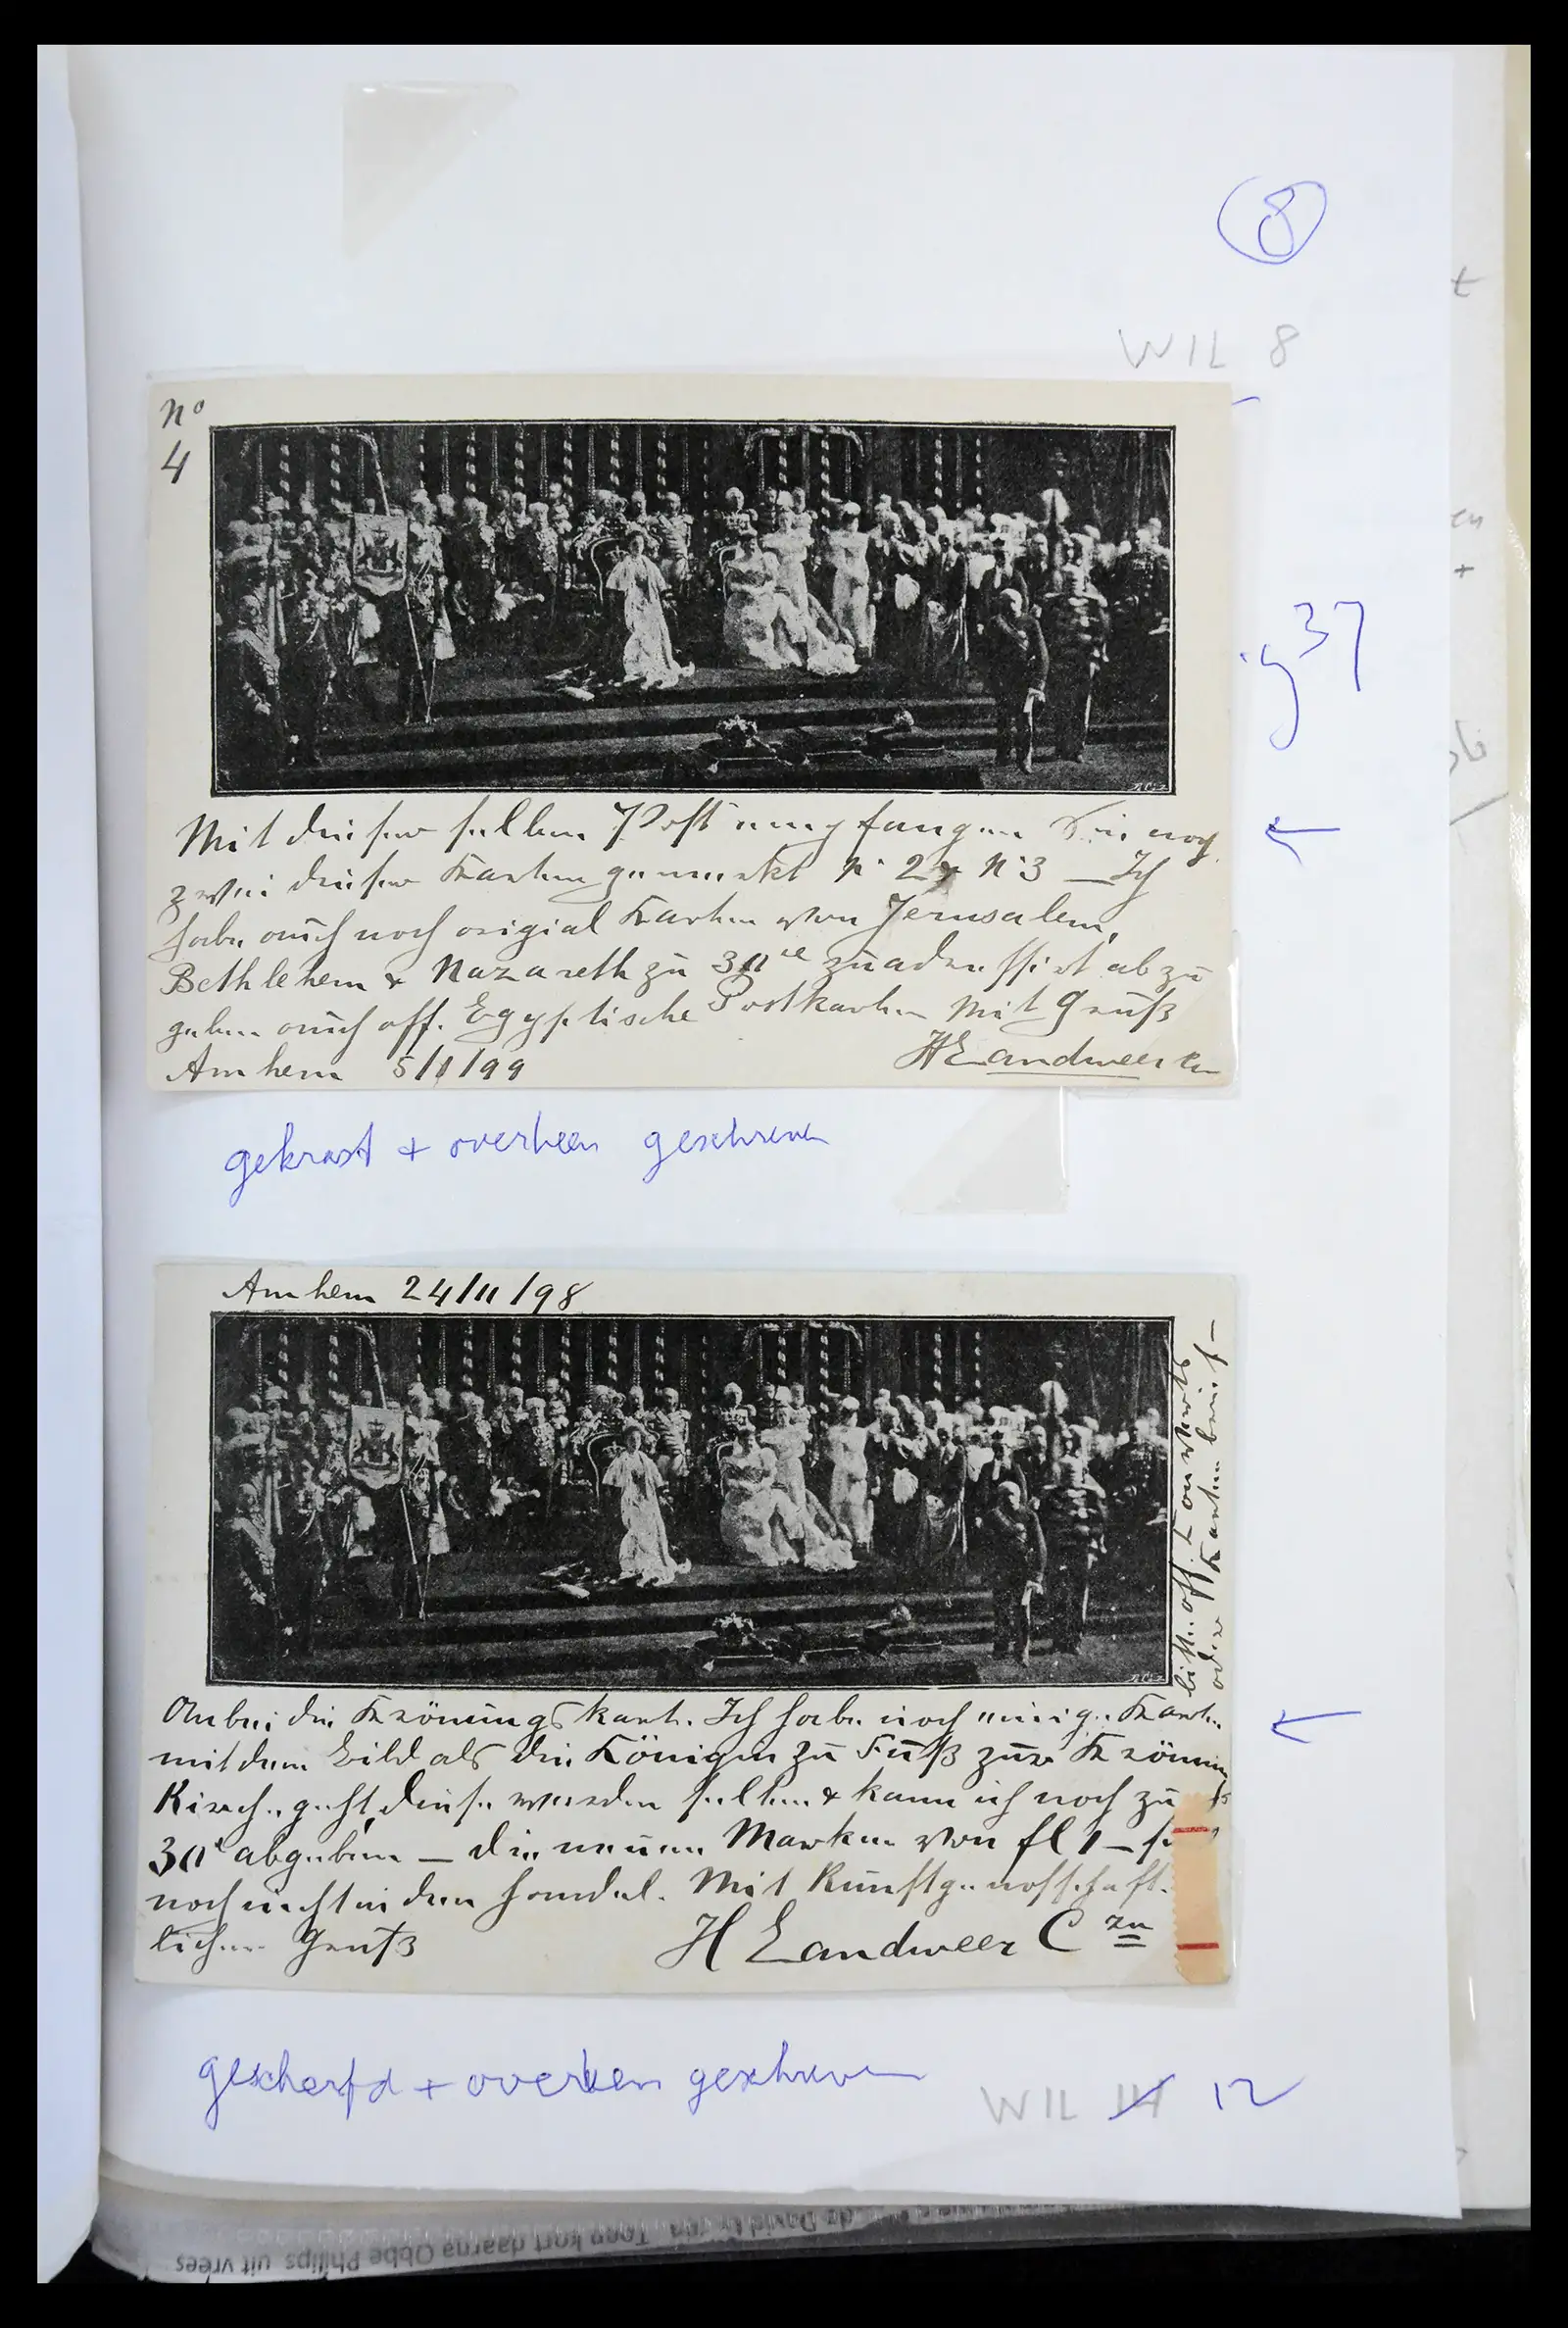 8
WIL 8
No
4
37
Mit dieser selben Post empfangen Sie noch
zwei dieser Karten gemerkt No 2 & No 3 — Ich
habe auch noch origial Karten von Jerusalem,
Bethlehem & Nazareth zu 30 ct zuadressirt abzu
geben auch off. Egyptische Postkarten Mit Gruß
Arnhem 5/1/99 H Landweer Czn
gekrast + overheen geschreven
Arnhem 24/11/98
bitte off. Couverts
oder Karten beim
Anbei die Krönungskarte. Ich habe noch einige Karten
mit dem Bild als die Königin zu Fuß zur Krönungs
Kirche geht, diese werden selten & kann ich noch zu
30 ct abgeben — die neuen Marken von fl 1 —
noch nicht in den Handel. Mit Kunstgenossschaft-
lichen Gruß
H Landweer C zn
gescherfd + overheen geschreven
WIL 14 12
Toen kort daarna Obbe Philips uit vrees